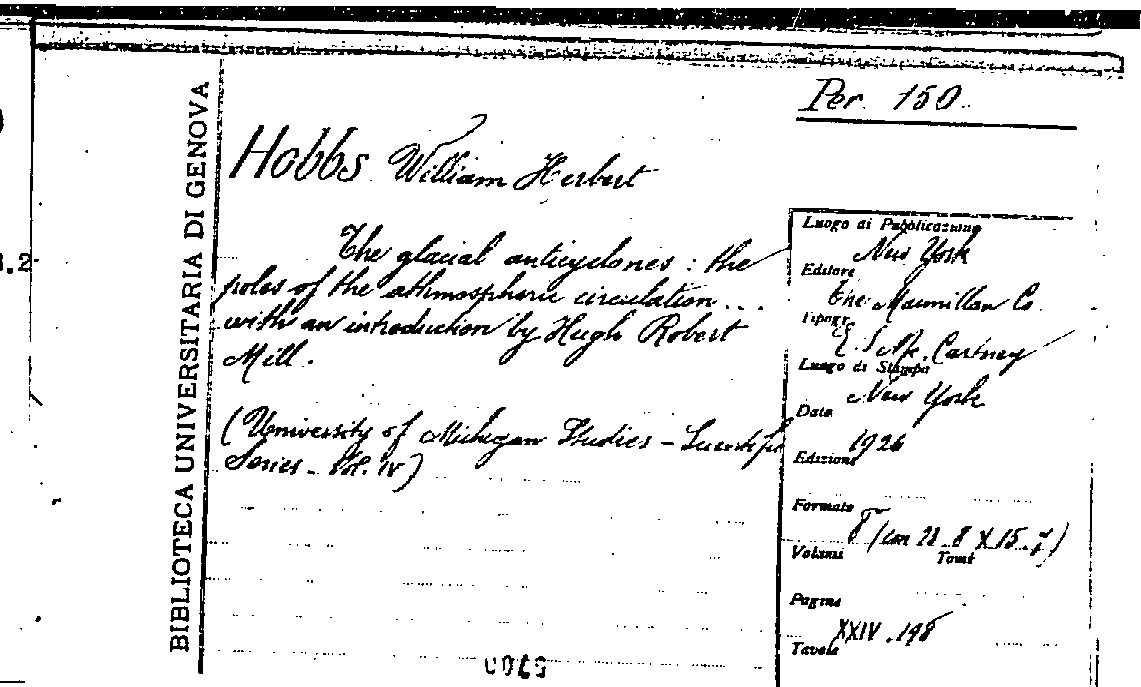 Per. 150.
BIBLIOTECA UNIVERSITARIA DI GENOVA
Hobbs William Herbert
The glacial anticyclones : the
poles of the athmospheric circulation ...
with an introduction by Hugh Robert
Mill.
(University of Michigan Studies - Scientific
Series - Vol. IV)
Luogo di Pubblicazione
New York
Editore
the Macmillan Co.
Tipogr.
Mc. Cartney
Luogo di Stampa
New York
Data
1926
Edizione
Formato
8° (cm 23.8 X 15.7)
Volumi Tomi
Pagine
XXIV.198
Tavole